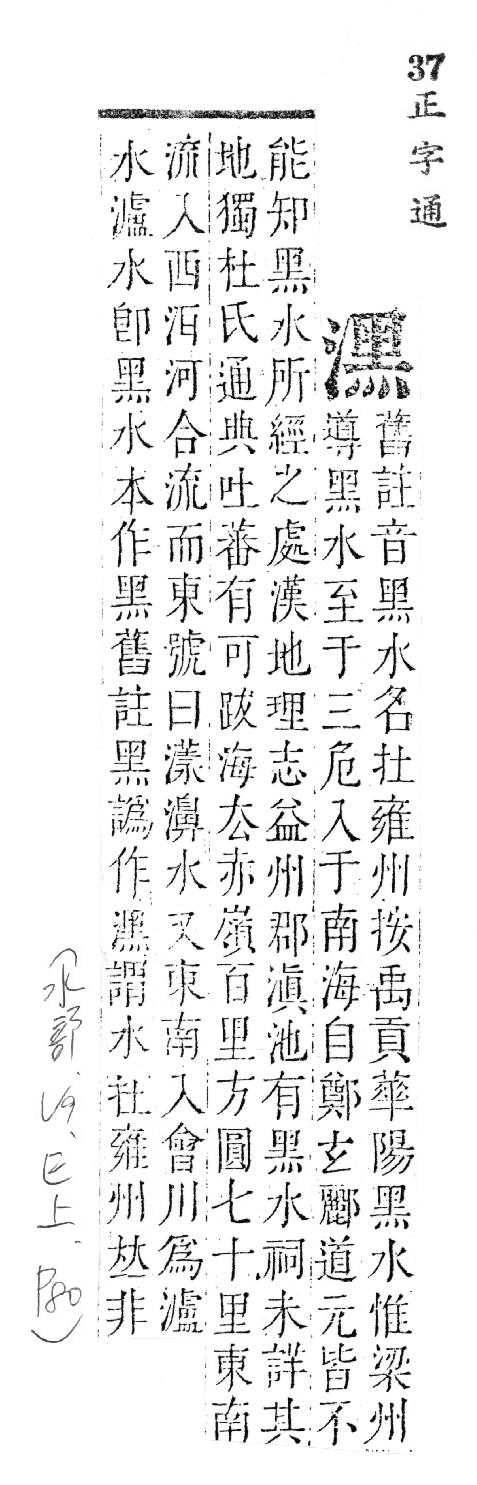 37 正字通
潶
舊註音黑水名在雍州按禹貢華陽黑水惟梁州
導黑水至于三危入于南海自鄭玄酈道元皆不
能知黑水所經之處漢地理志益州郡滇池有黑水祠未詳其
地獨杜氏通典吐蕃有可跋海去赤嶺百里方圓七十里東南
流入西洱河合流而東號曰漾濞水又東南入會川爲瀘
水瀘水卽黑水本作黑舊註黑譌作潶謂水在雍州𠀤非
(水部,巳上,P80)